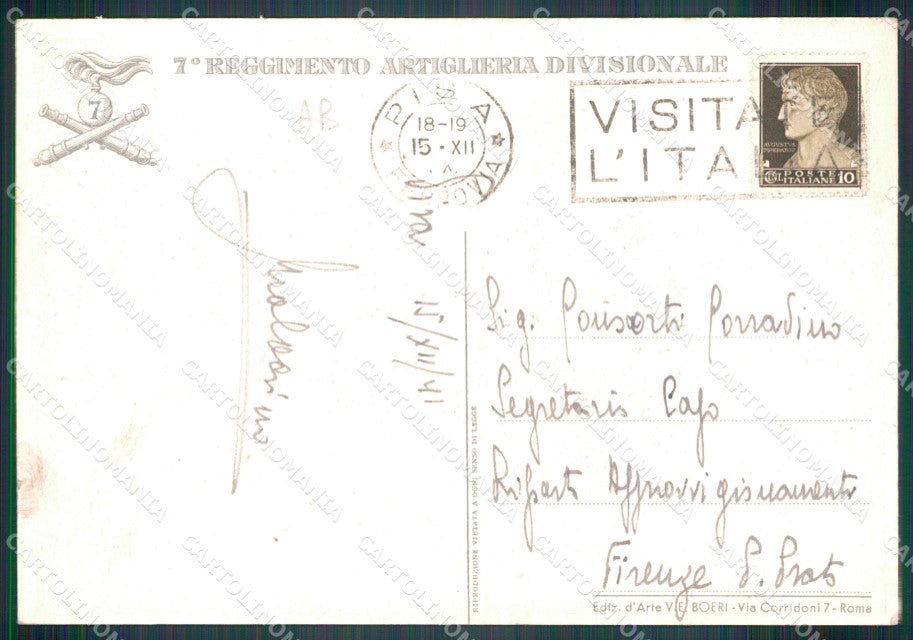 7° REGGIMENTO ARTIGLIERIA DIVISIONALE
7
AB
PISA
18-19
15·XII
FERROVIA
VISITA
L'ITA
AVGVSTVS
IMPERATOR
CENT. POSTE
ITALIANE 10
15/XII/41
Sig. Consorti Corradino
Segretario Capo
Riparti Approvvigionamenti
Firenze P. Prato
RIPRODUZIONE VIETATA A OGNI SENSO DI LEGGE
Ediz. d'Arte V. E. BOERI - Via Corridoni 7 - Roma
CARTOLINOMANIA